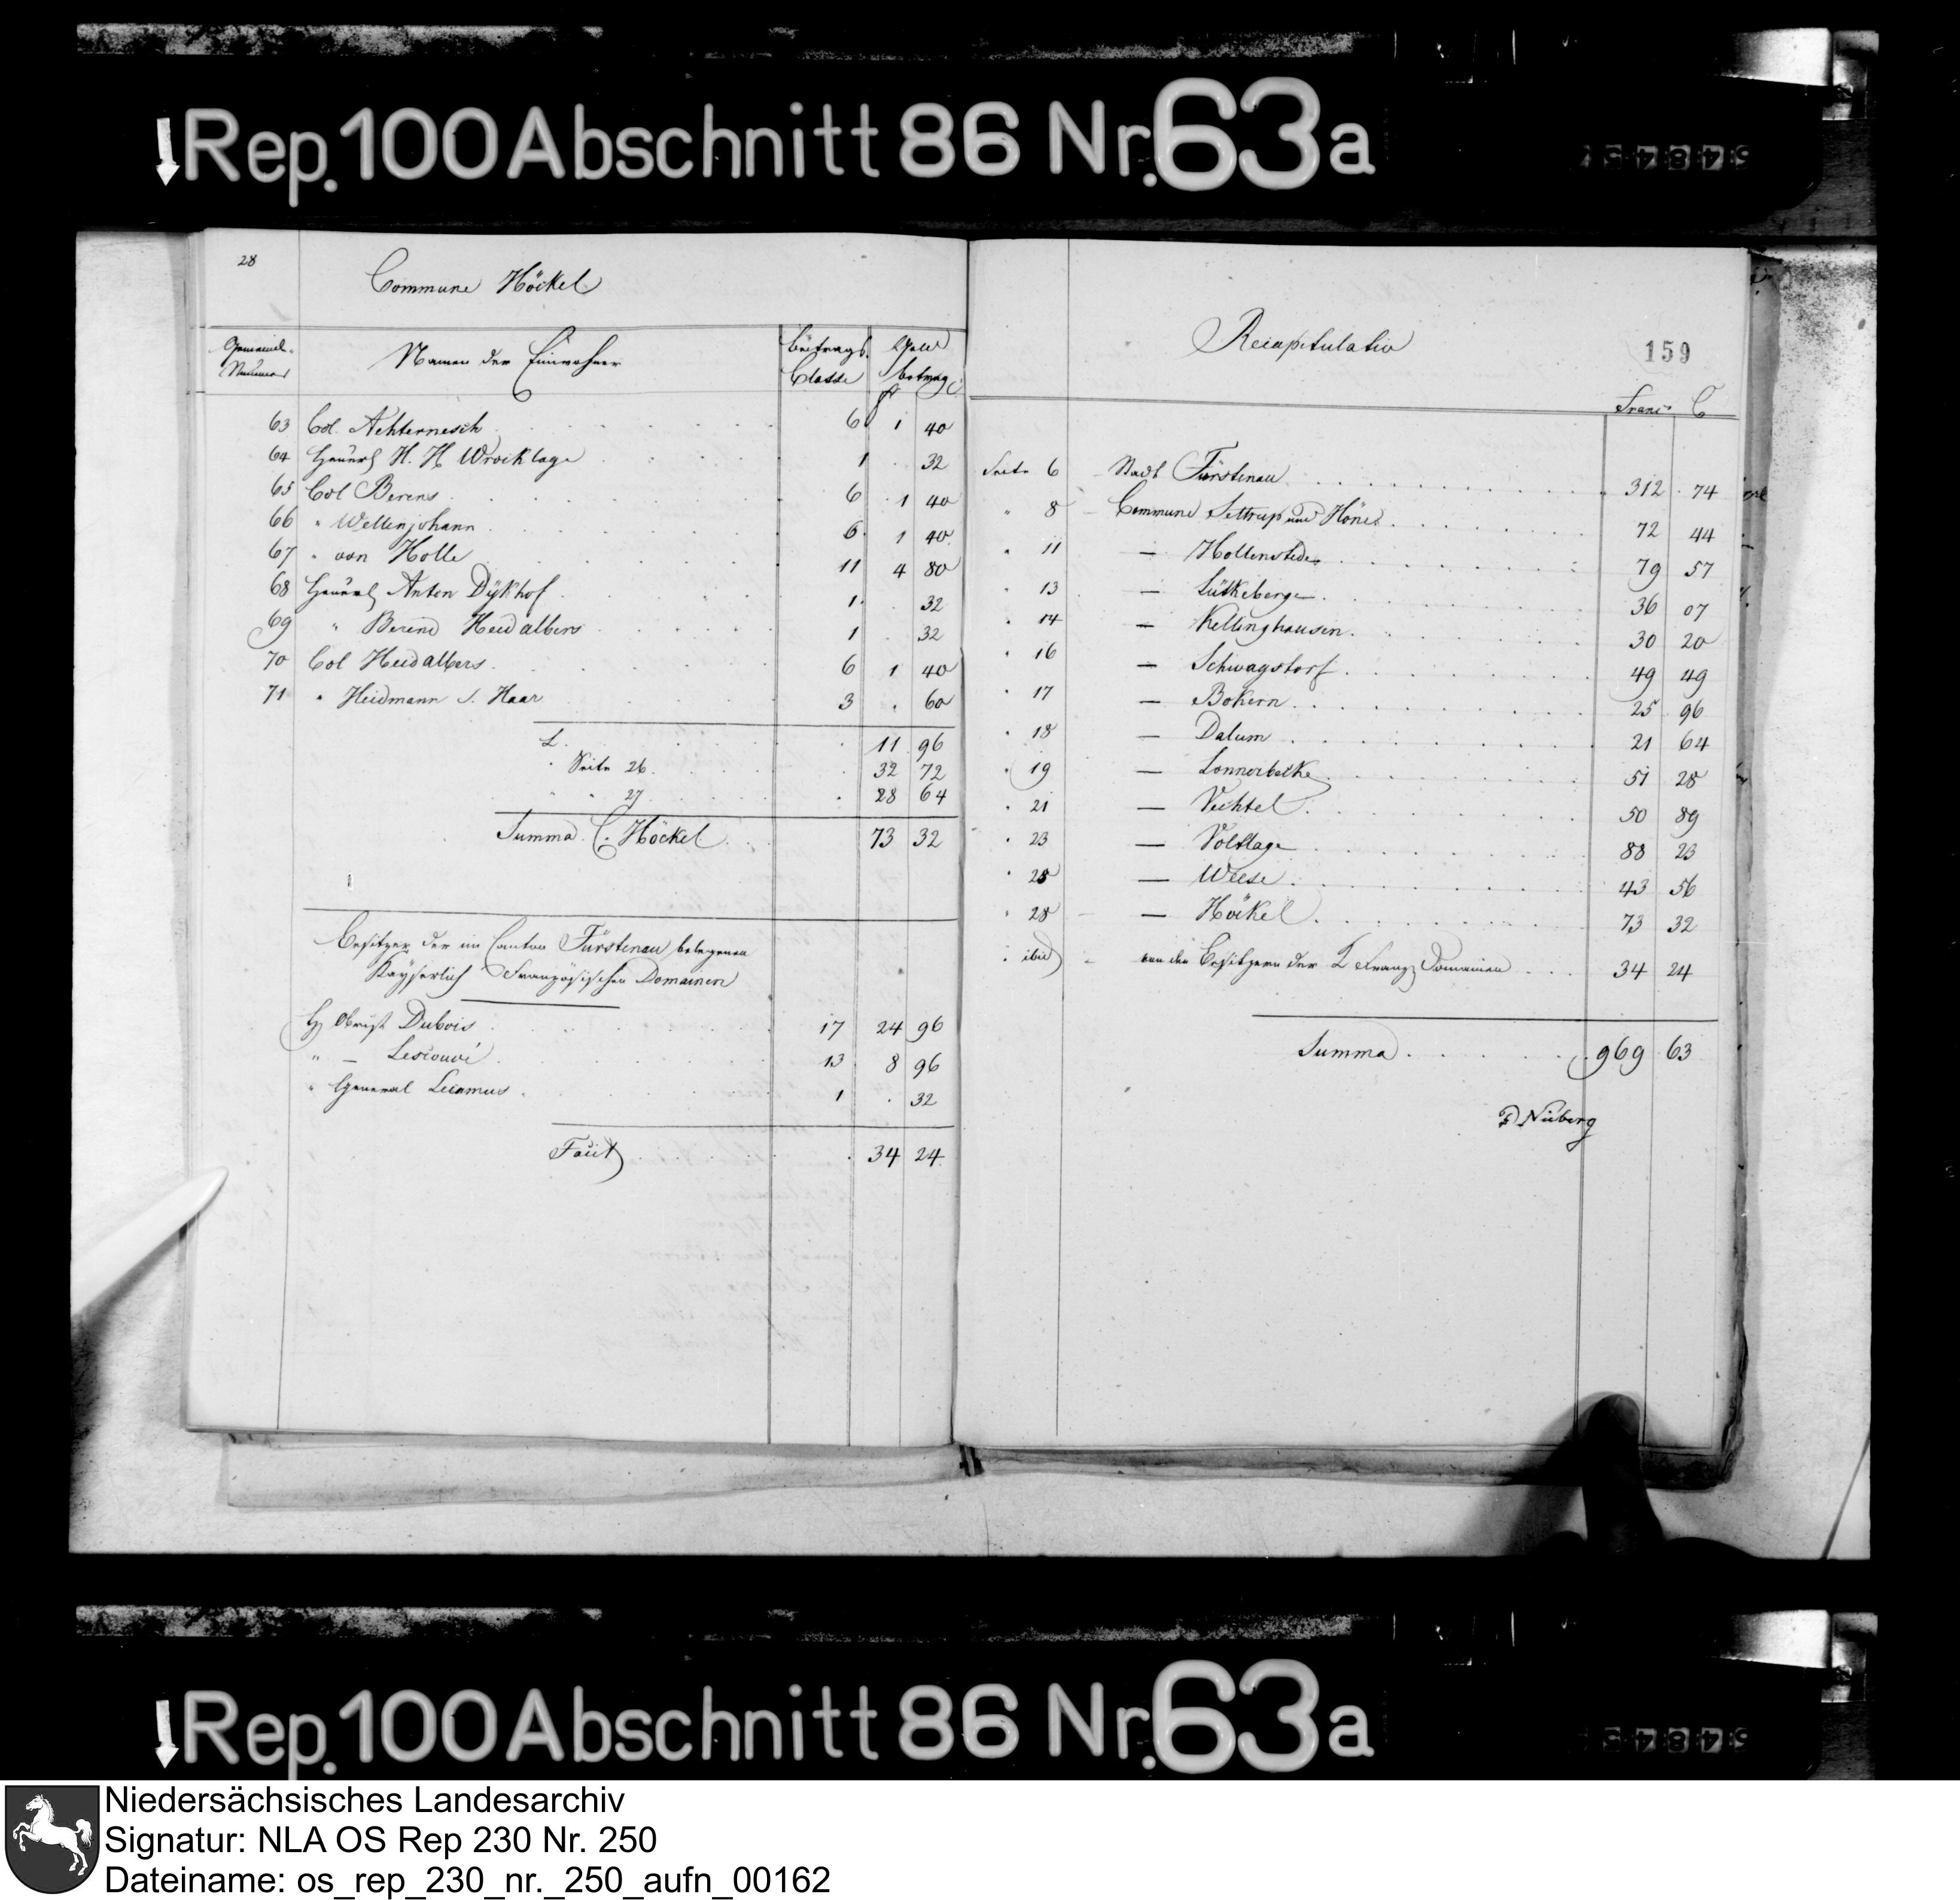 Rep. 100 Abschnitt 86 Nr. 63a
28
Commune Höckel
Namen der Einwohner
Beitrags Classe
Geld betrag
fr C
63 Col. Achternesch 6 1 40
64 Heuerl H. H Wrocklage 1 . 32
65 Col Berens 6 1 40
66 " Wellenjohann 6 1 40
67 " von Holle 11 4 80
68 Heuerl Anton Dÿkhof 1 . 32
69 " Berend Heidalbers 1 . 32
70 Col Heidalbers 6 1 40
71 " Heidmann s. Haar 3 . 60
L. 11 96
" Seite 26 32 72
" " 27 28 64
Summa C. Höckel 73 32
Besitzer der im Canton Fürstenau belegenen
Kaÿserlich Französischen Domainen
H Obrist Dubois 17 24 96
" — 13 8 96
" General Lecamus 1 . 32
Facit 34 24
Recapitulatio
159
Franc C
Seite 6 Stadt Fürstenau 312 74
" 8 Commune Settrup und Höne 72 44
" 11 — Hollenstede 79 57
" 13 — Lütkeberge 36 07
" 14 — Kellinghausen 30 20
" 16 — Schwagstorf 49 49
" 17 — Bokern 25 96
" 18 — Dalum 21 64
" 19 — Lonnerbecke 51 28
" 21 — Vechtel 50 89
" 23 — Voltlage 88 23
" 25 — Weese 43 56
" 28 — Höckel 73 32
" ibid von den Besitzern der K Franz Domainen 34 24
Summa 969 63
Nieberg
Rep. 100 Abschnitt 86 Nr. 63a
Niedersächsisches Landesarchiv
Signatur: NLA OS Rep 230 Nr. 250
Dateiname: os_rep_230_nr._250_aufn_00162